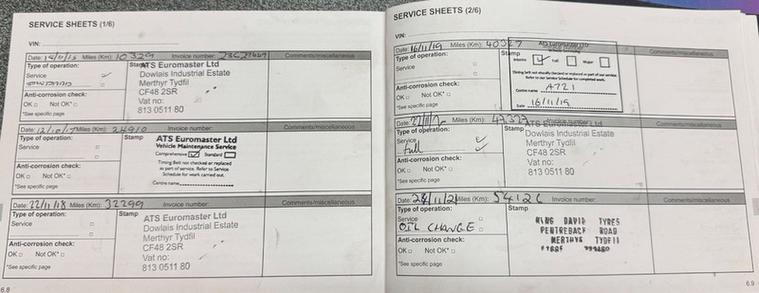 SERVICE SHEETS (1/6)
VIN:
Date: Miles (Km): 10329 Invoice number: Comments/miscellaneous
Type of operation: Stamp
Service
ATS Euromaster Ltd
Dowlais Industrial Estate
Merthyr Tydfil
CF48 2SR
Vat no:
813 0511 80
Anti-corrosion check:
OK □ Not OK* □
*See specific page
Date: 12/10/17 Miles (Km): 24910 Invoice number: Comments/miscellaneous
Type of operation: Stamp
Service
ATS Euromaster Ltd
Vehicle Maintenance Service
Comprehensive Standard
Timing Belt not checked or replaced
as part of service. Refer to Service
Schedule for work carried out.
Centre name
Anti-corrosion check:
OK □ Not OK* □
*See specific page
Date: 22/11/18 Miles (Km): 32299 Invoice number: Comments/miscellaneous
Type of operation: Stamp
Service
ATS Euromaster Ltd
Dowlais Industrial Estate
Merthyr Tydfil
CF48 2SR
Vat no:
813 0511 80
Anti-corrosion check:
OK □ Not OK* □
*See specific page
6.8
SERVICE SHEETS (2/6)
VIN:
Date: 16/11/19 Miles (Km): 40327 Comments/miscellaneous
Type of operation: Stamp
Service
Full Major
Timing belt not visually checked or replaced as part of our service.
Refer to our Service Schedule for completed work.
Centre name A721
Date 16/11/19
Anti-corrosion check:
OK □ Not OK* □
*See specific page
Date: Miles (Km): Invoice number: Comments/miscellaneous
Type of operation: Stamp
Service
Full
ATS Euromaster Ltd
Dowlais Industrial Estate
Merthyr Tydfil
CF48 2SR
Vat no:
813 0511 80
Anti-corrosion check:
OK □ Not OK* □
*See specific page
Date: Miles (Km): Invoice number: Comments/miscellaneous
Type of operation: Stamp
Service
OIL CHANGE
KING DAVID TYRES
PENTREBACH ROAD
MERTHYR TYDFIL
Anti-corrosion check:
OK □ Not OK* □
*See specific page
6.9